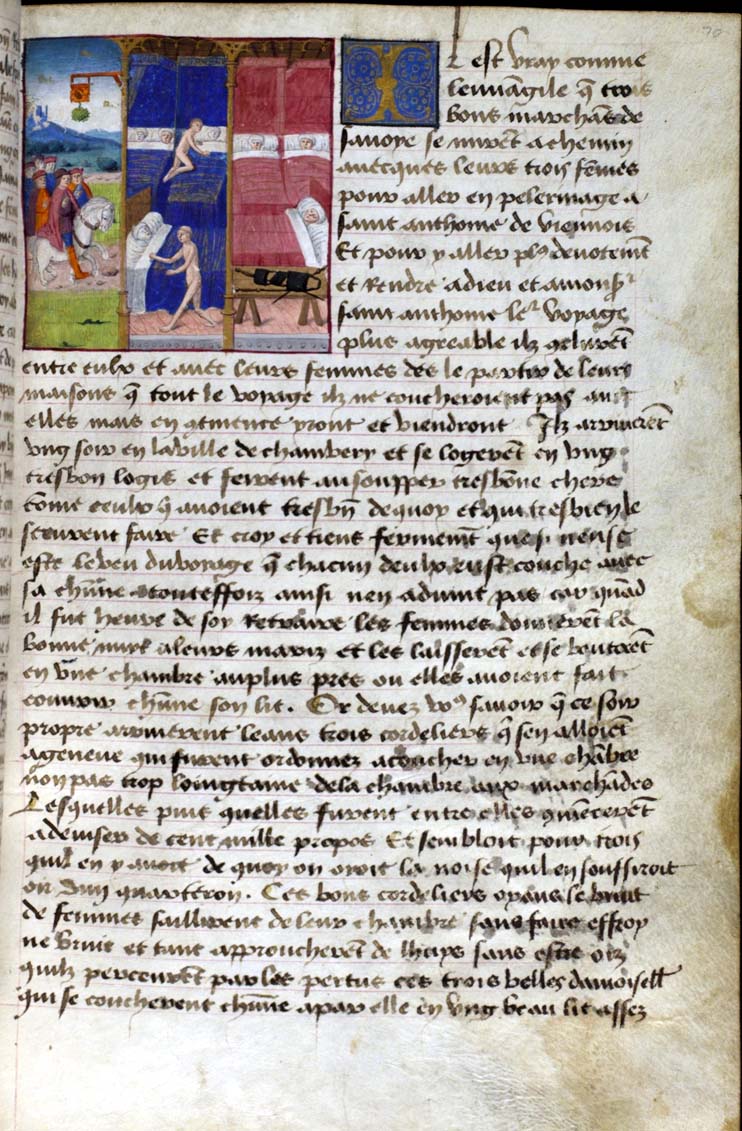 70
Il est vray comme
leuuangile q̃ trois
bons marchãs de
sauoye se mirẽt a chemin
auecques leurs trois fẽmes
pour aller en pelerinage a
saint anthoine de viennois
Et pour y aller pl⁹ deuotemẽt
et Rendre a dieu et a mons͛
saint anthoine leᷣ voyage
plus agreable ilz
entre eulx et auec leurs femmes des le partir de leurs
maisons q̃ tout le voyage ilz ne coucheroient pas auec
elles mais en yront et viendront Ilz arriuerẽt
vng soir en la ville de chambery et se logerẽt en vng
tresbon logis et firent au soupper tresbõne chere
cõme ceulx q̃ auoient tresbñ de quoy et qui tresbien le
sceurent faire Et croy et tiens fermemẽt que si neust
este le veu du voyage q̃ chacun deulx eust couche auec
sa chũne toutteffoiz ainsi nen aduint pas car quãd
il fut heure de soy Retraire les femmes donnerẽt la
bonne nuyt a leurs mariz et les laisserẽt et se boutẽrẽt
en vne chambre au plus pres ou elles auoient fait
couurir chũne son lit. Or deuez vo⁹ sauoir q̃ ce soir
propre arriuerent leans trois cordeliers q̃ sen alloiẽt
a geneue qui furent ordonnez a coucher en vne chãbre
non pas trop loingtaine de la chambre aux marchãdes
Lesquelles puis quelles furent entre elles
a deuiser de cent mille propos Et sembloit pour trois
quil en y auoit de quoy on oioit la noise quil en souffiroit
oir dun quarteron. Ces bons cordeliers oyans le bruit
de femmes saillirent de leur chambre sans faire effroy
ne bruit et tant approucherẽt de lhuys sans estre oiz
quilz perceurẽt par les pertus ces trois belles damoisell̃
qui se coucherent chũne a par elle en vng beau lit assez